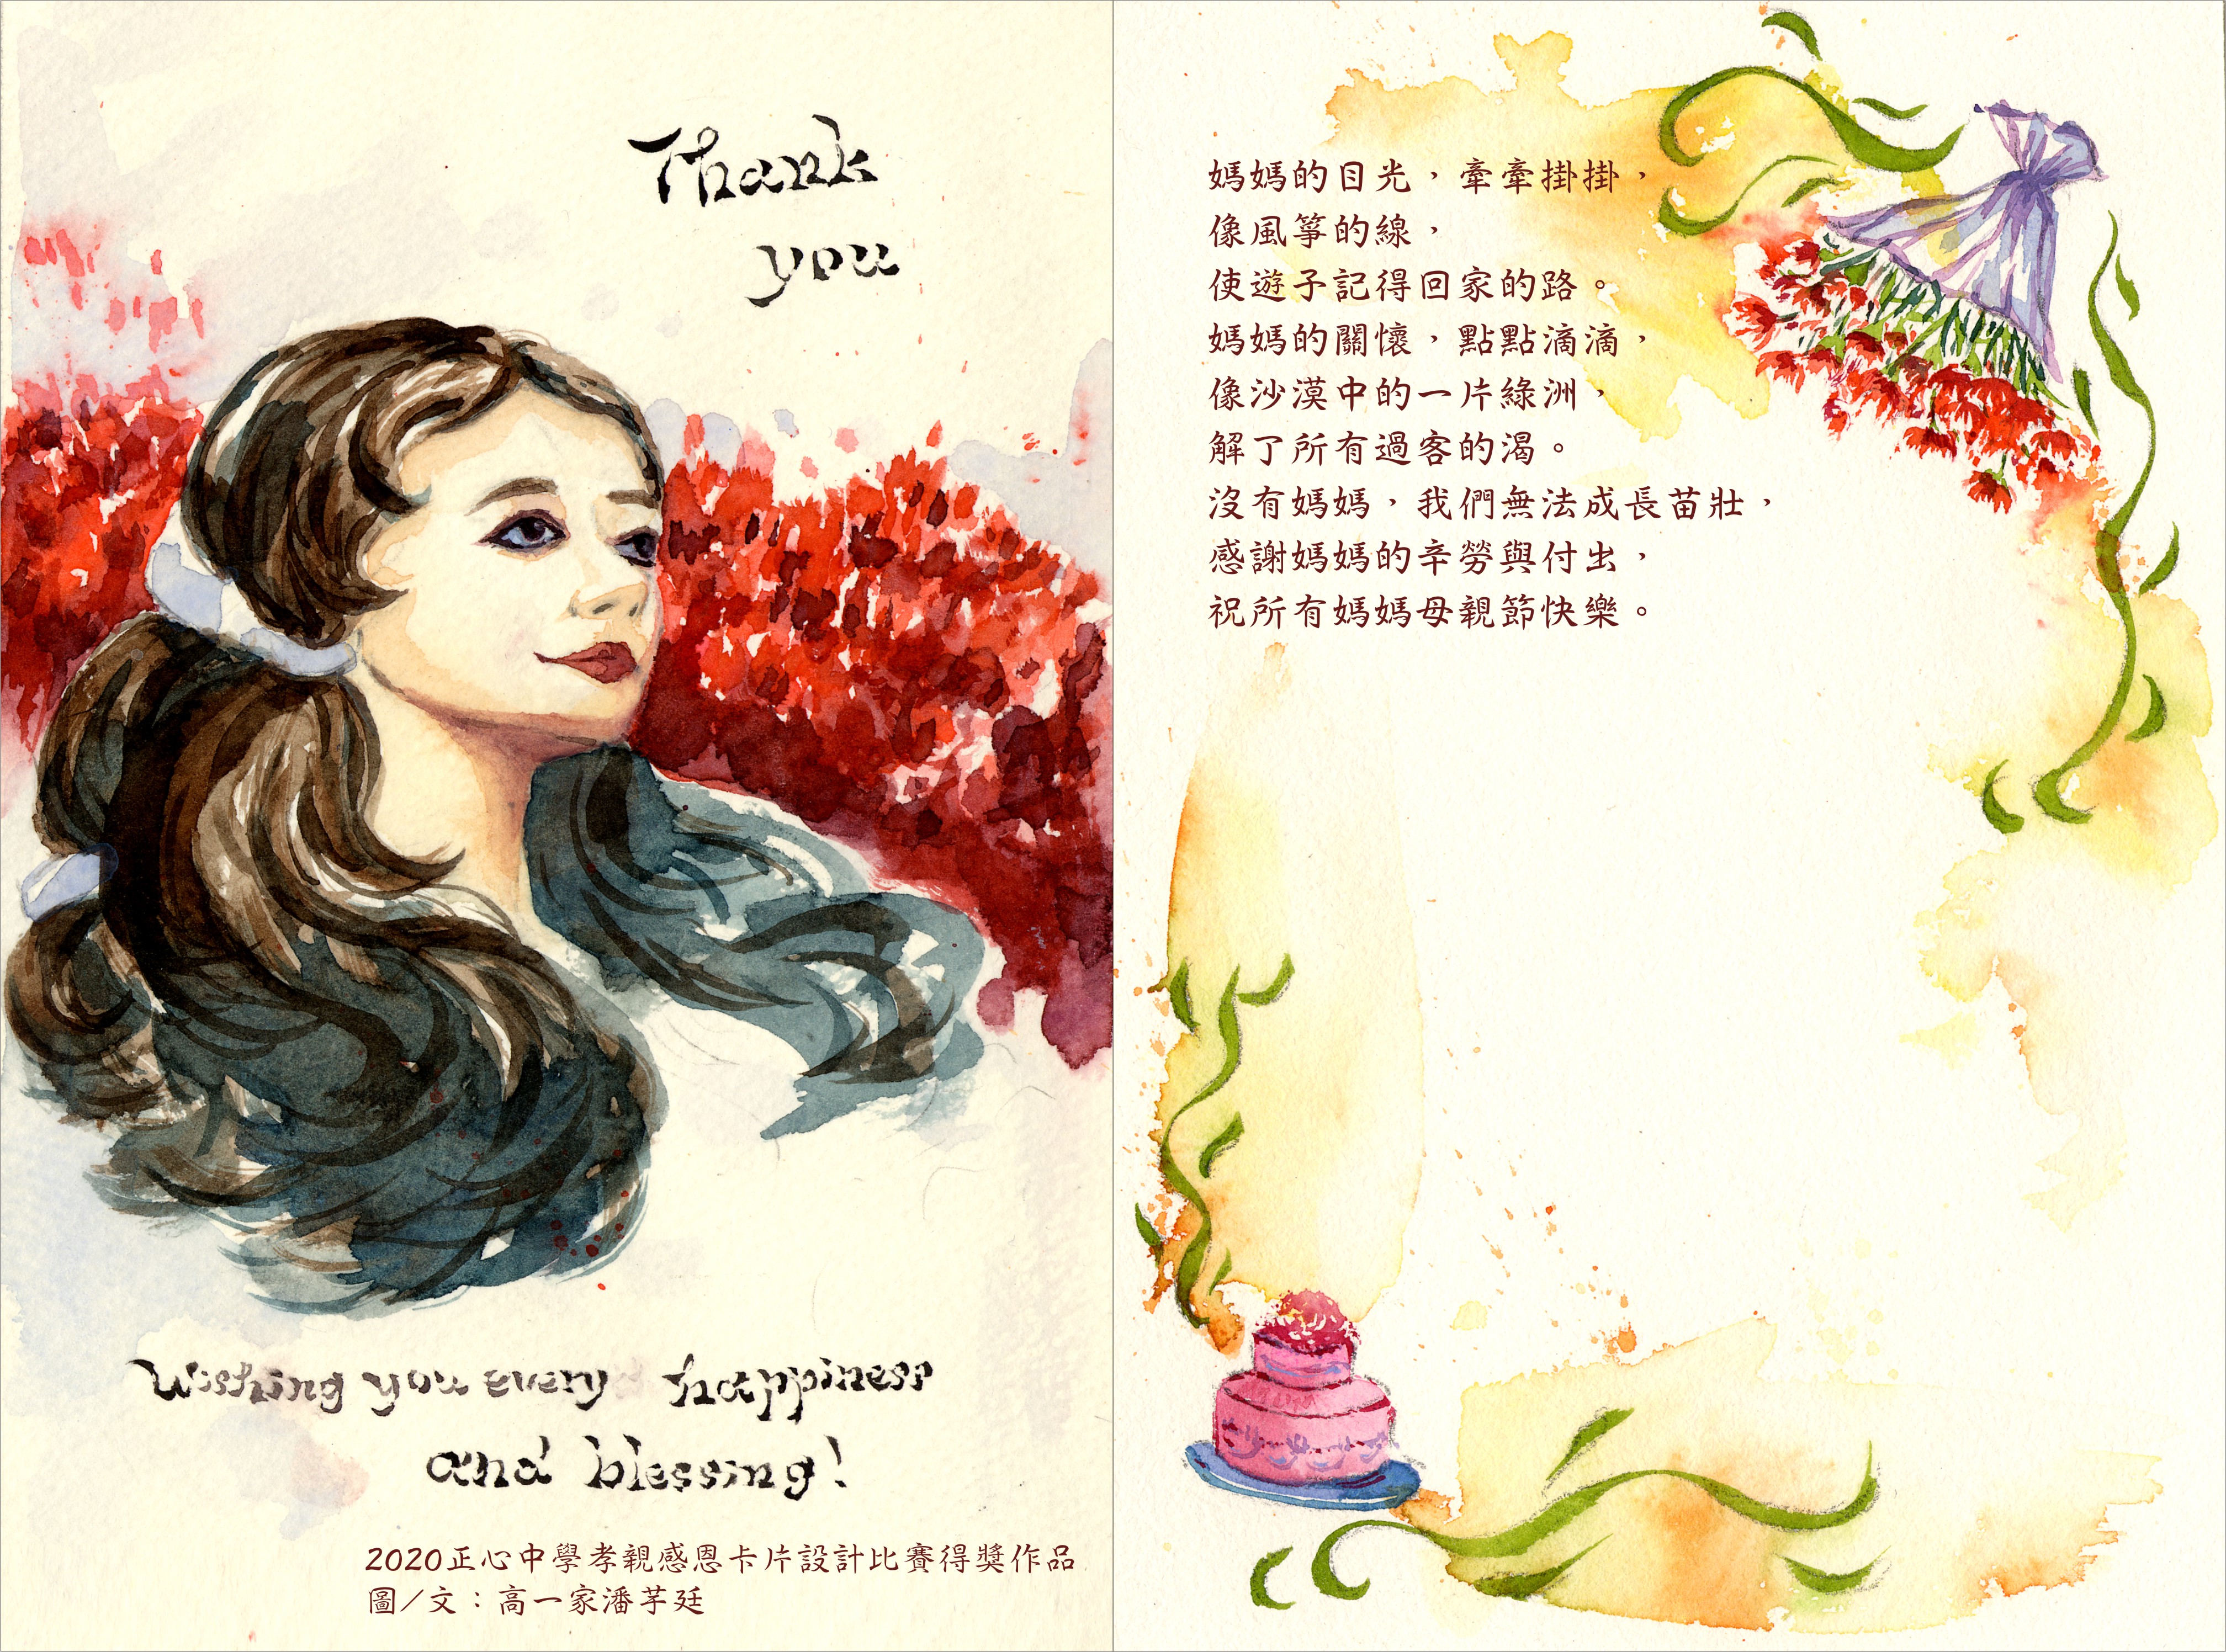 Thank
you
Wishing you every happiness
and blessing!
2020正心中學孝親感恩卡片設計比賽得獎作品
圖/文：高一家潘芓廷
媽媽的目光，牽牽掛掛，
像風箏的線，
使遊子記得回家的路。
媽媽的關懷，點點滴滴，
像沙漠中的一片綠洲，
解了所有過客的渴。
沒有媽媽，我們無法成長苗壯，
感謝媽媽的辛勞與付出，
祝所有媽媽母親節快樂。